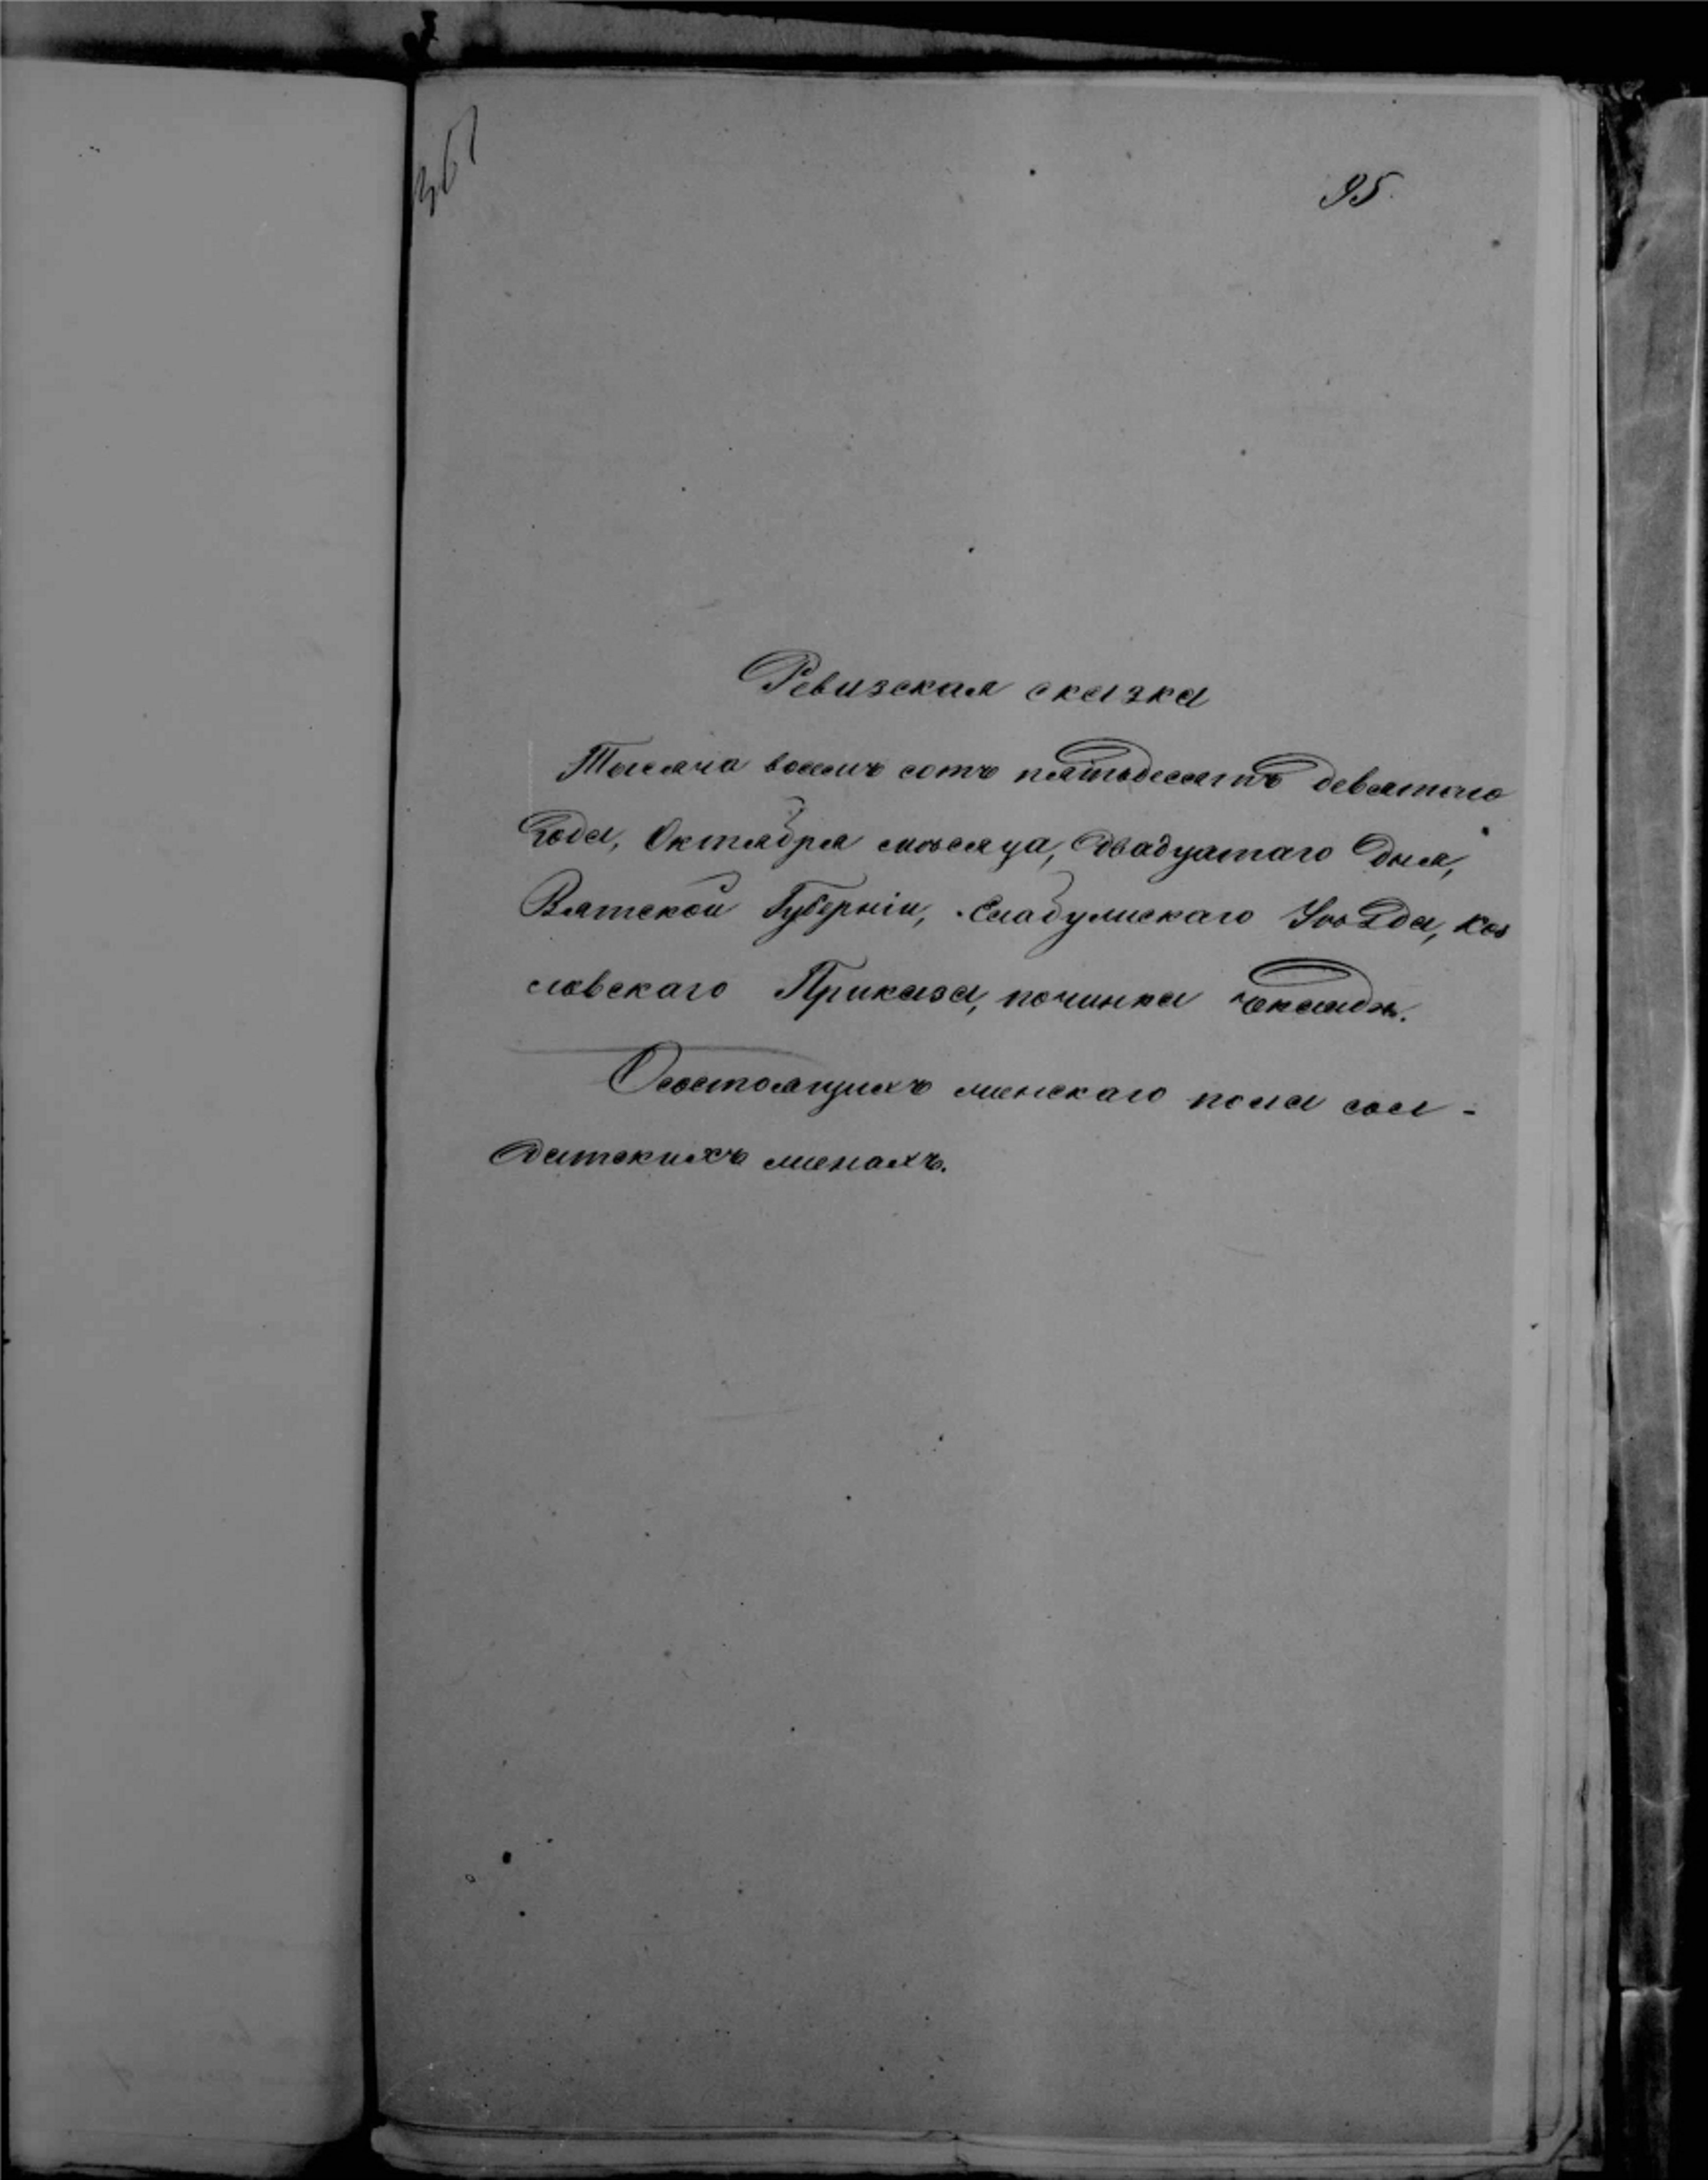 361
95.
Ревизская сказка
Тысяча восемь сотъ пятьдесятъ девятого
Года, Октября мѣсяца, двадцатаго дня,
Вятской Губерніи, Елабужскаго Уѣзда, Коз
ловскаго Приказа, починка
О состоящихъ женскаго пола сол-
датскихъ женахъ.